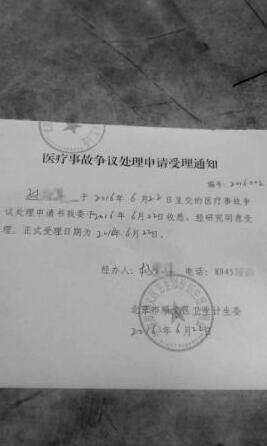 医疗事故争议处理申请受理通知
编号：2016002
于2016年6月22日呈交的医疗事故争
议处理申请书我委于2016年6月22日收悉，经研究同意受
理。正式受理日期为2016年6月22日。
经办人： 电话：8945
北京市顺义区卫生计生委
2016年6月22日